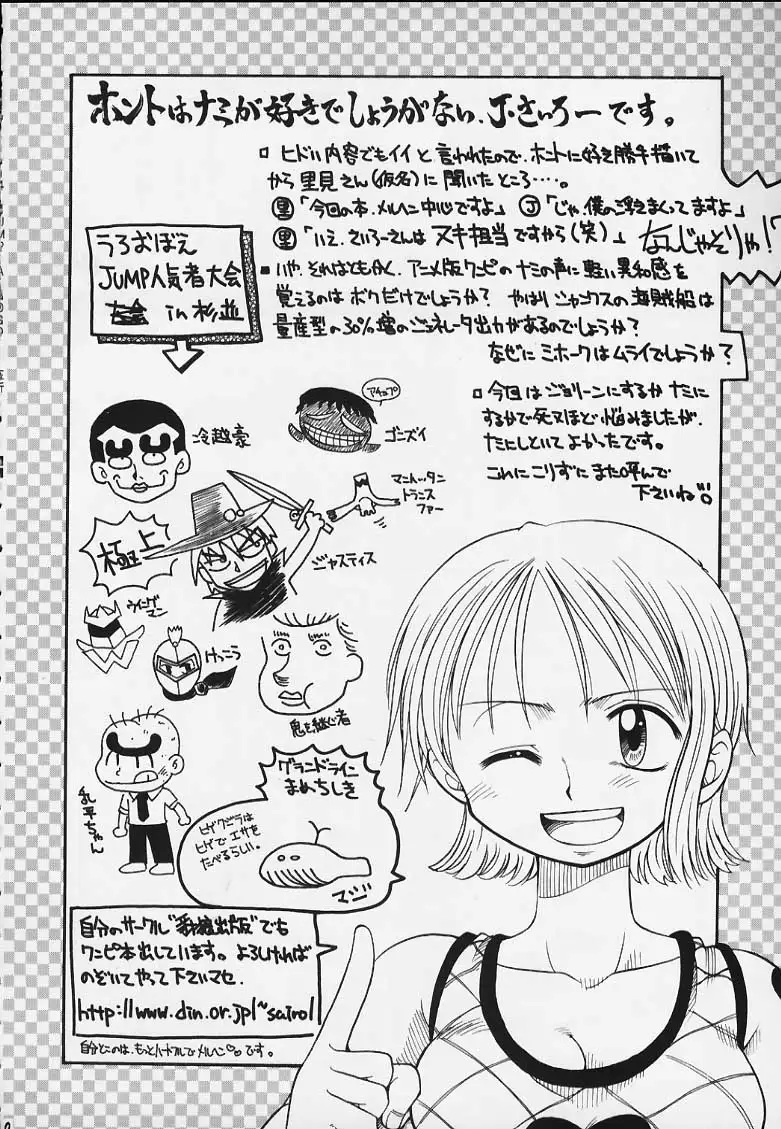 ホントはナミが好きでしょうがない、J・さいろーです。
ヒドい内容でもイイと言われたので、ホントに好き勝手描いて
から里見さん(仮名)に聞いたところ‥‥。
里「今回の本、メルヘン中心ですよ」 J「じゃ、僕の浮きまくってますよ」
里「いえ、さいろーさんはヌキ担当ですから(笑)」 なんじゃそりゃ!?
うろおぼえ
JUMP人気者大会
in 杉並
いや、それはともかく、アニメ版ワンピのナミの声に軽い異和感を
覚えるのはボクだけでしょうか? やはりシャンクスの海賊船は
量産型の30%増のジェネレータ出力があるのでしょうか?
なぜにミホークはムライでしょうか?
今回はジョリーンにするかナミに
するかで死ぬほど悩みましたが、
ナミにしといてよかったです。
これにこりずにまた呼んで
下さいね
冷越豪
アチョプ
ゴンズイ
マンハッタン
トランス
ファー
極上
ジャスティス
ウイング
マン
けっこう
息を継ぐ者
乳平ちゃん
グランドライン
まめちしき
ヒゲクジラは
ヒゲでエサを
たべるらしい。
マジ
自分のサークル“ ”でも
ワンピ本出しています。よろしければ
のぞいてやって下さいマセ.
http://www.din.or.jp/~sairo/
自分とこのは、もっとハートフルでメルヘン♡♡です。